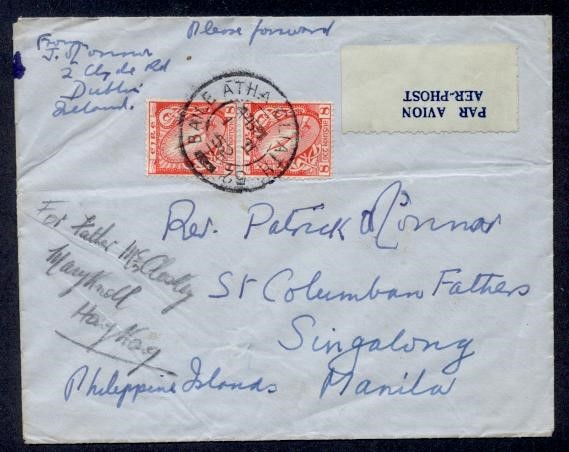 From
J. O'Connor
2 Clyde Rd
Dublin
Ireland.
Please forward
PAR AVION
AER-PHOST
BAILE ATHA CLIATH
8
8
Rev. Patrick O'Connor
St Columban Fathers
Singalong
Philippine Islands Manila
For Father
Maryknoll
Hong Kong